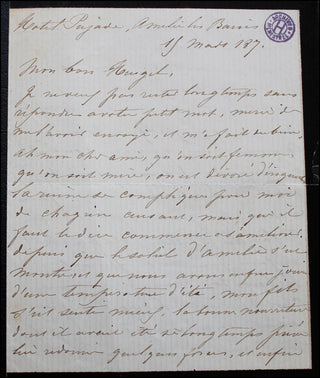 Hotel Pujade, Amélie les Bains
15 Mars 187.
Mon bon Heugel,
Je ne veux pas rester longtemps sans
répondre a votre petit mot, merci de
me l'avoir envoyé, il m'a fait du bien,
ah mon cher ami, qu'on soit femme
qu'on soit mère, on est dévoré d'
la mienne se complique pour moi
de chagrin cuisant, mais qui il
faut le dire commence a s'améliorer.
depuis que le soleil d'amélie s'est
montré, et que nous avons enfin joui
d'une température d'été, mon fils
s'est senti mieux, la bonne nourriture
dont il avait été si longtemps privé
lui redonne quelques forces, et enfin